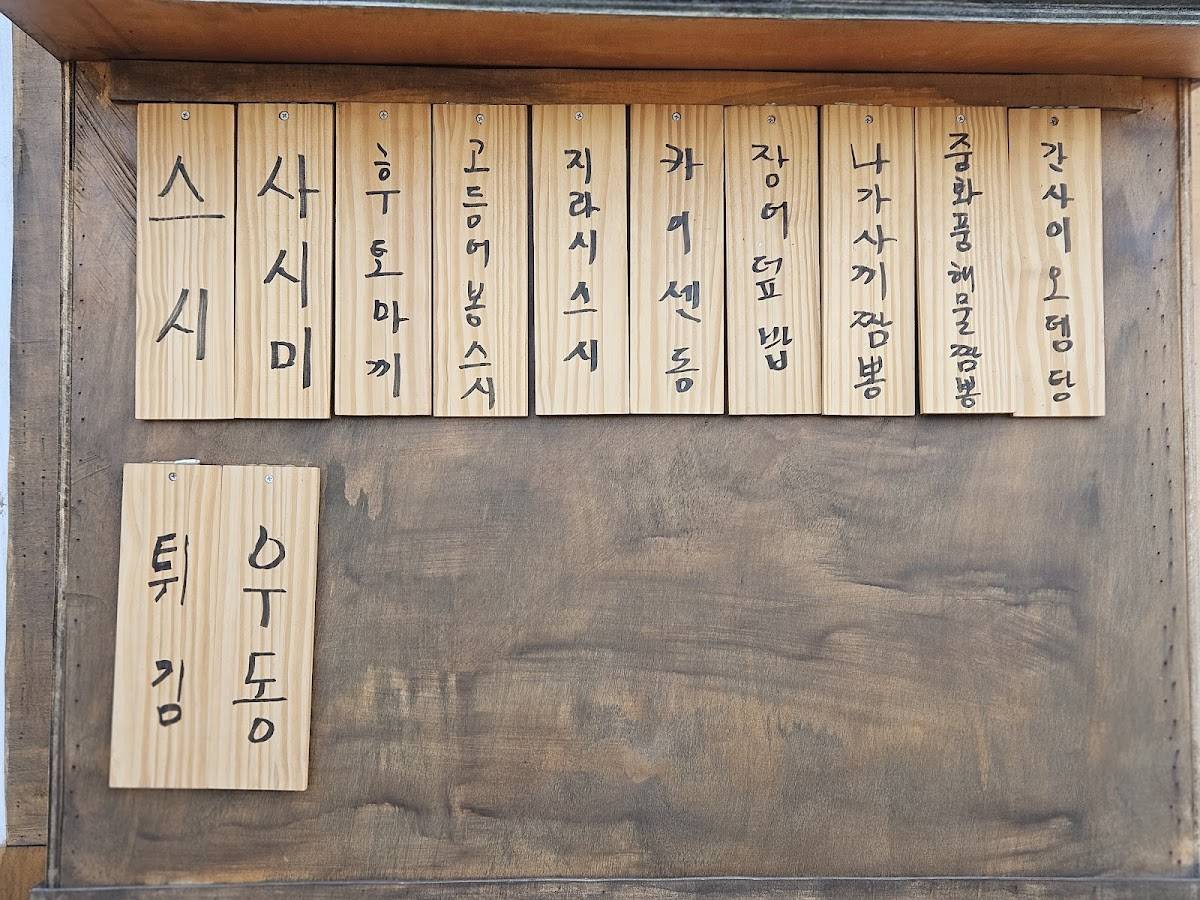 스시
사시미
후토마끼
고등어봉스시
지라시스시
카이센동
장어덮밥
나가사끼짬뽕
중화풍해물짬뽕
간사이오뎅탕
튀김
우동